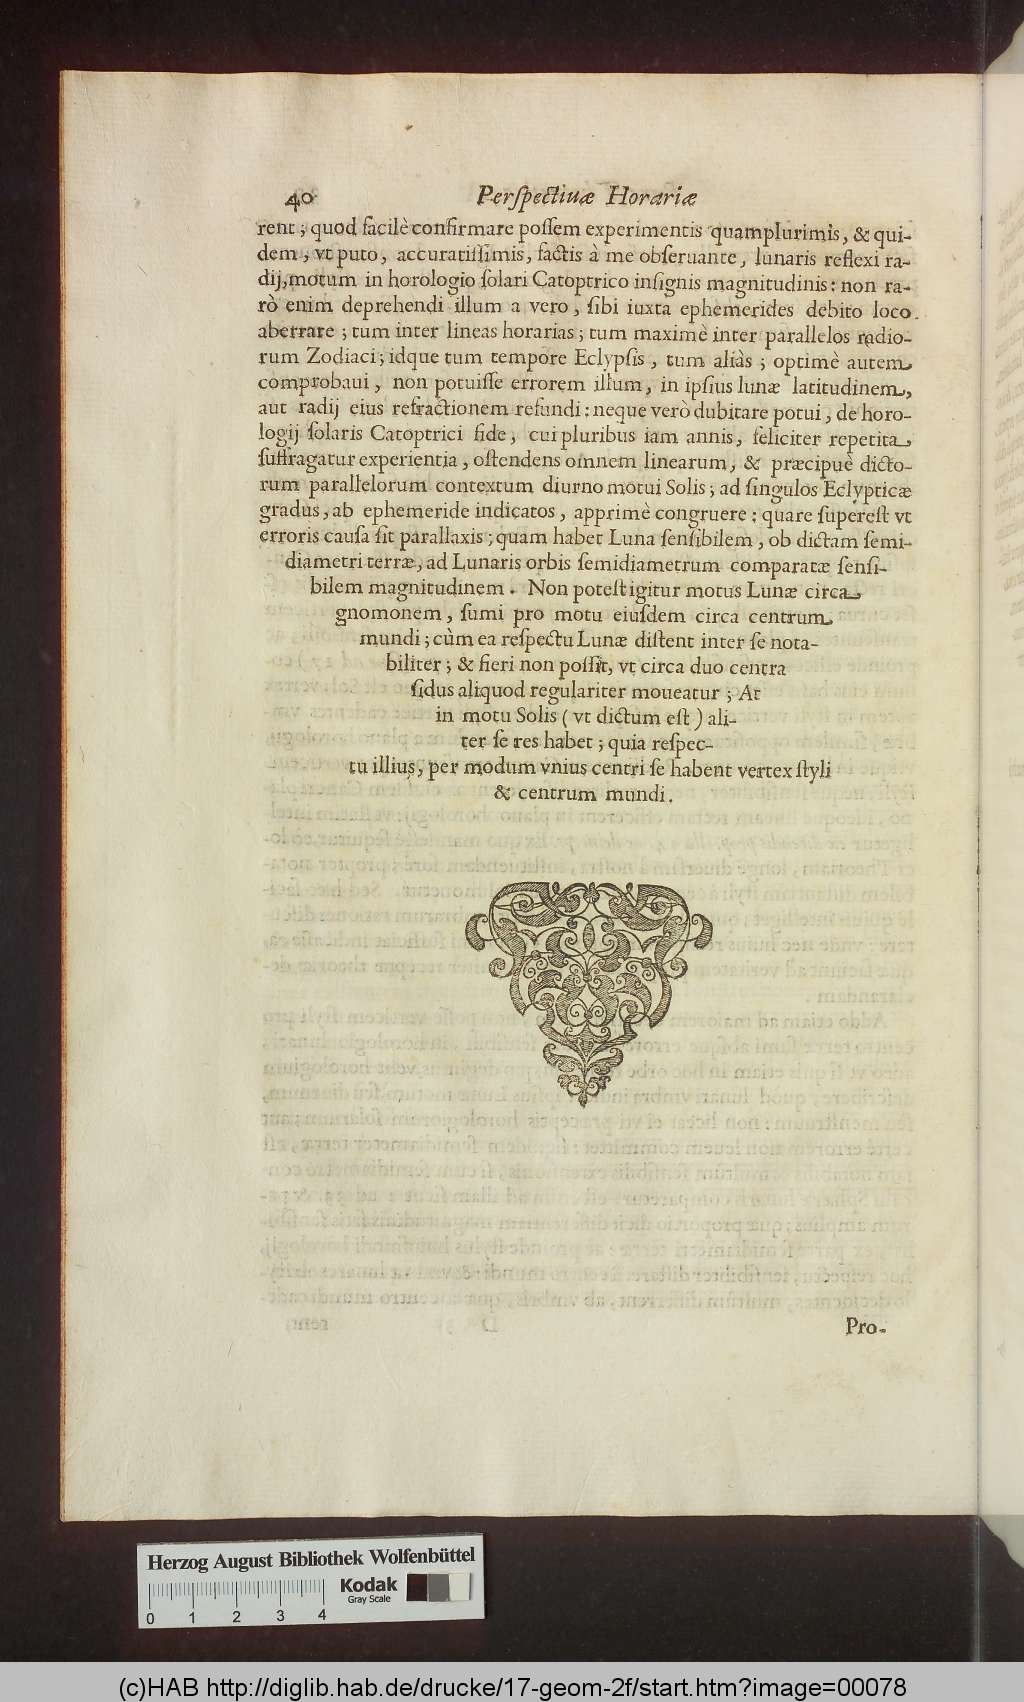 40 Perſpectiuæ Horariæ
rent; quod facilè confirmare poſſem experimentis quamplurimis, & qui-
dem, vt puto, accuratiſſimis, factis à me obſeruante, lunaris reflexi ra-
dij, motum in horologio ſolari Catoptrico inſignis magnitudinis: non ra-
rò enim deprehendi illum a vero, ſibi iuxta ephemerides debito loco
aberrare; tum inter lineas horarias; tum maximè inter parallelos radio-
rum Zodiaci; idque tum tempore Eclypſis, tum aliàs; optimè autem
comprobaui, non potuiſſe errorem illum, in ipſius lunæ latitudinem,
aut radij eius refractionem refundi: neque verò dubitare potui, de horo-
logij ſolaris Catoptrici fide, cui pluribus iam annis, feliciter repetita
ſuffragatur experientia, oſtendens omnem linearum, & præcipuè dicto-
rum parallelorum contextum diurno motui Solis; ad ſingulos Eclypticæ
gradus, ab ephemeride indicatos, apprimè congruere: quare ſupereſt vt
erroris cauſa ſit parallaxis; quam habet Luna ſenſibilem, ob dictam ſemi-
diametri terræ, ad Lunaris orbis ſemidiametrum comparatæ ſenſi-
bilem magnitudinem. Non poteſt igitur motus Lunæ circa
gnomonem, ſumi pro motu eiuſdem circa centrum
mundi; cùm ea reſpectu Lunæ diſtent inter ſe nota-
biliter; & fieri non poſſit, vt circa duo centra
ſidus aliquod regulariter moueatur; At
in motu Solis (vt dictum eſt) ali-
ter ſe res habet; quia reſpec-
tu illius, per modum vnius centri ſe habent vertex ſtyli
& centrum mundi.
Pro-
Herzog August Bibliothek Wolfenbüttel
Kodak
Gray Scale
0 1 2 3 4
(c)HAB http://diglib.hab.de/drucke/17-geom-2f/start.htm?image=00078